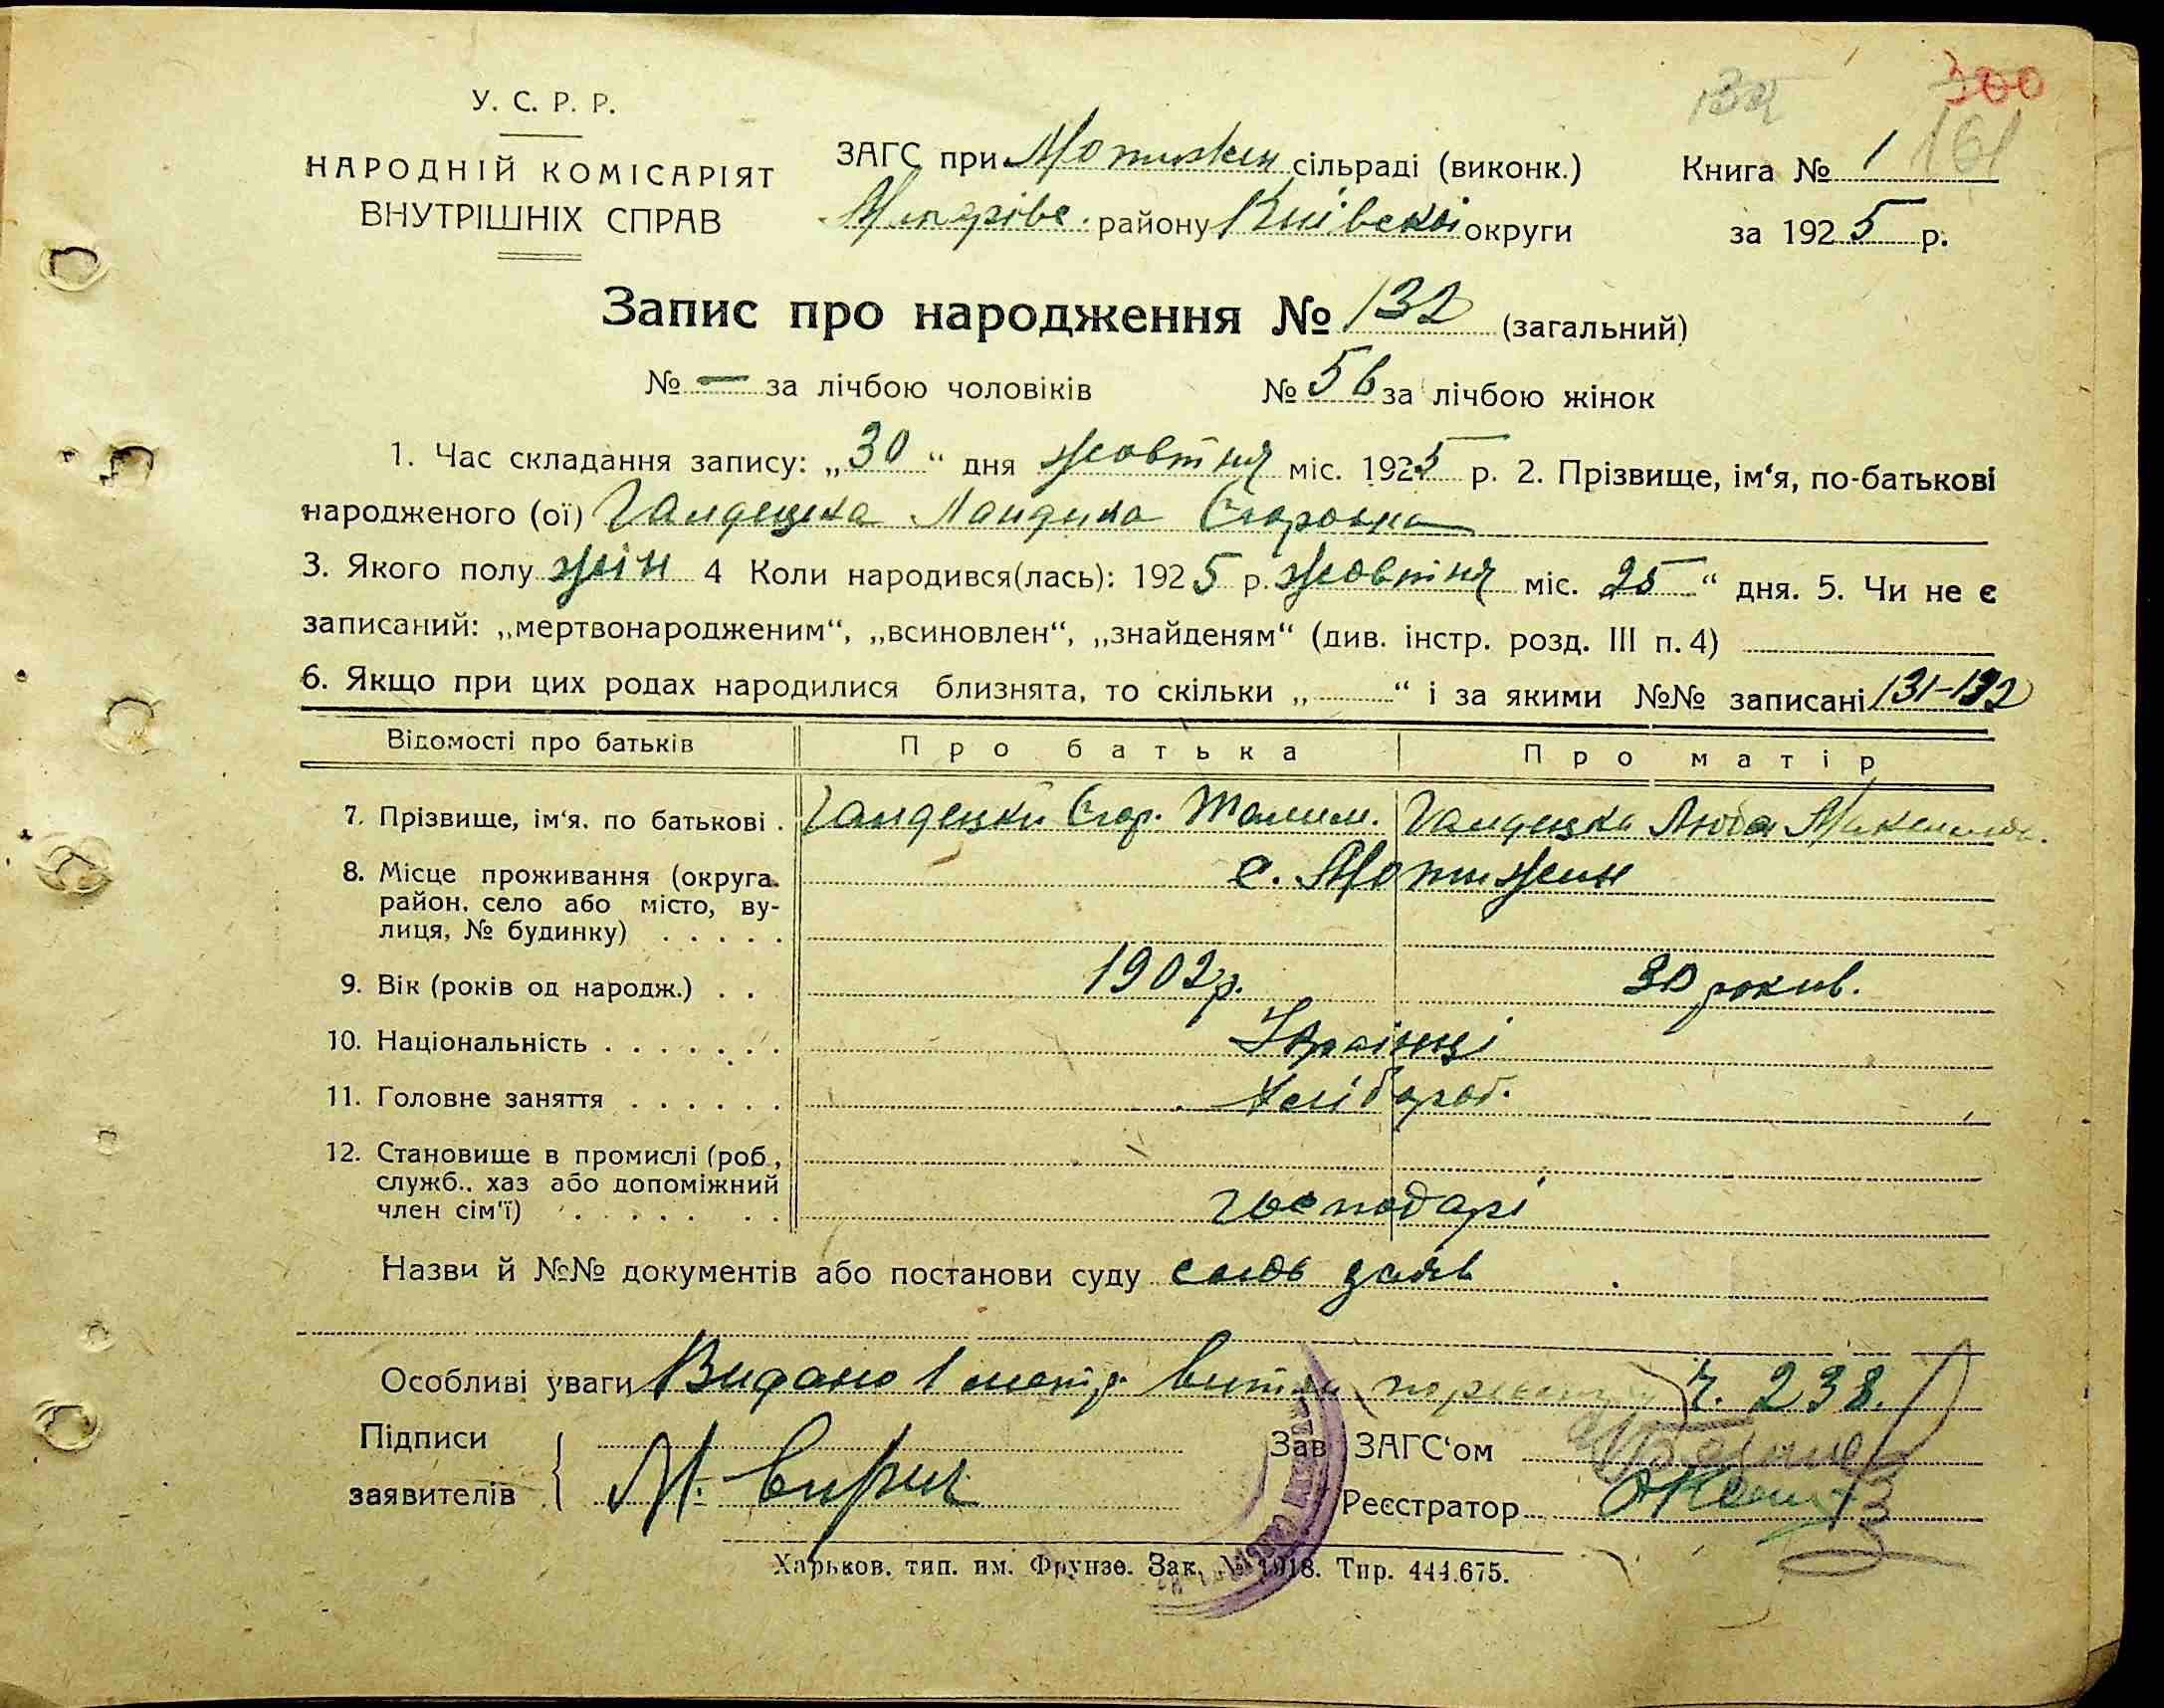 300
161
У. С. Р. Р.
НАРОДНІЙ КОМІСАРІЯТ
ВНУТРІШНІХ СПРАВ
ЗАГС при Мотижин сільраді (виконк.)
району Київської округи
Книга № 1
за 1925 р.
Запис про народження № 132 (загальний)
№ — за лічбою чоловіків № 56 за лічбою жінок
1. Час складання запису: „30“ дня жовтня міс. 1925 р. 2. Прізвище, ім‘я, по-батькові
народженого (ої)
3. Якого полу жін 4 Коли народився(лась): 1925 р. жовтня міс. 25“ дня. 5. Чи не є
записаний: „мертвонародженим“, „всиновлен“, „знайденям“ (див. інстр. розд. III п. 4)
6. Якщо при цих родах народилися близнята, то скільки „ “ і за якими №№ записані 131-132
Відомості про батьків Про батька Про матір
7. Прізвище, ім‘я, по батькові . Люба
8. Місце проживання (округа, с. Мотижин
район, село або місто, ву-
лиця, № будинку) . . . . .
9. Вік (років од народж.) . . 1902 р. 30 років.
10. Національність . . . . . . . Українці
11. Головне заняття . . . . . . Хліб
12. Становище в промислі (роб.,
служб., хаз або допоміжний
член сім'ї) . . . . . . господарі
Назви й №№ документів або постанови суду
Особливі уваги Видано 1 ч. 238.
Підписи
заявителів
Зав ЗАГС‘ом
Реєстратор
Харьков. тип. им. Фрунзе. Зак. № 1918. Тир. 444.675.